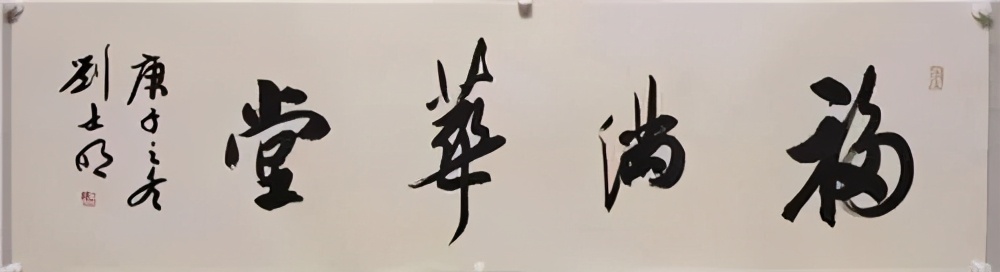 福满華堂
庚子之冬
劉士明